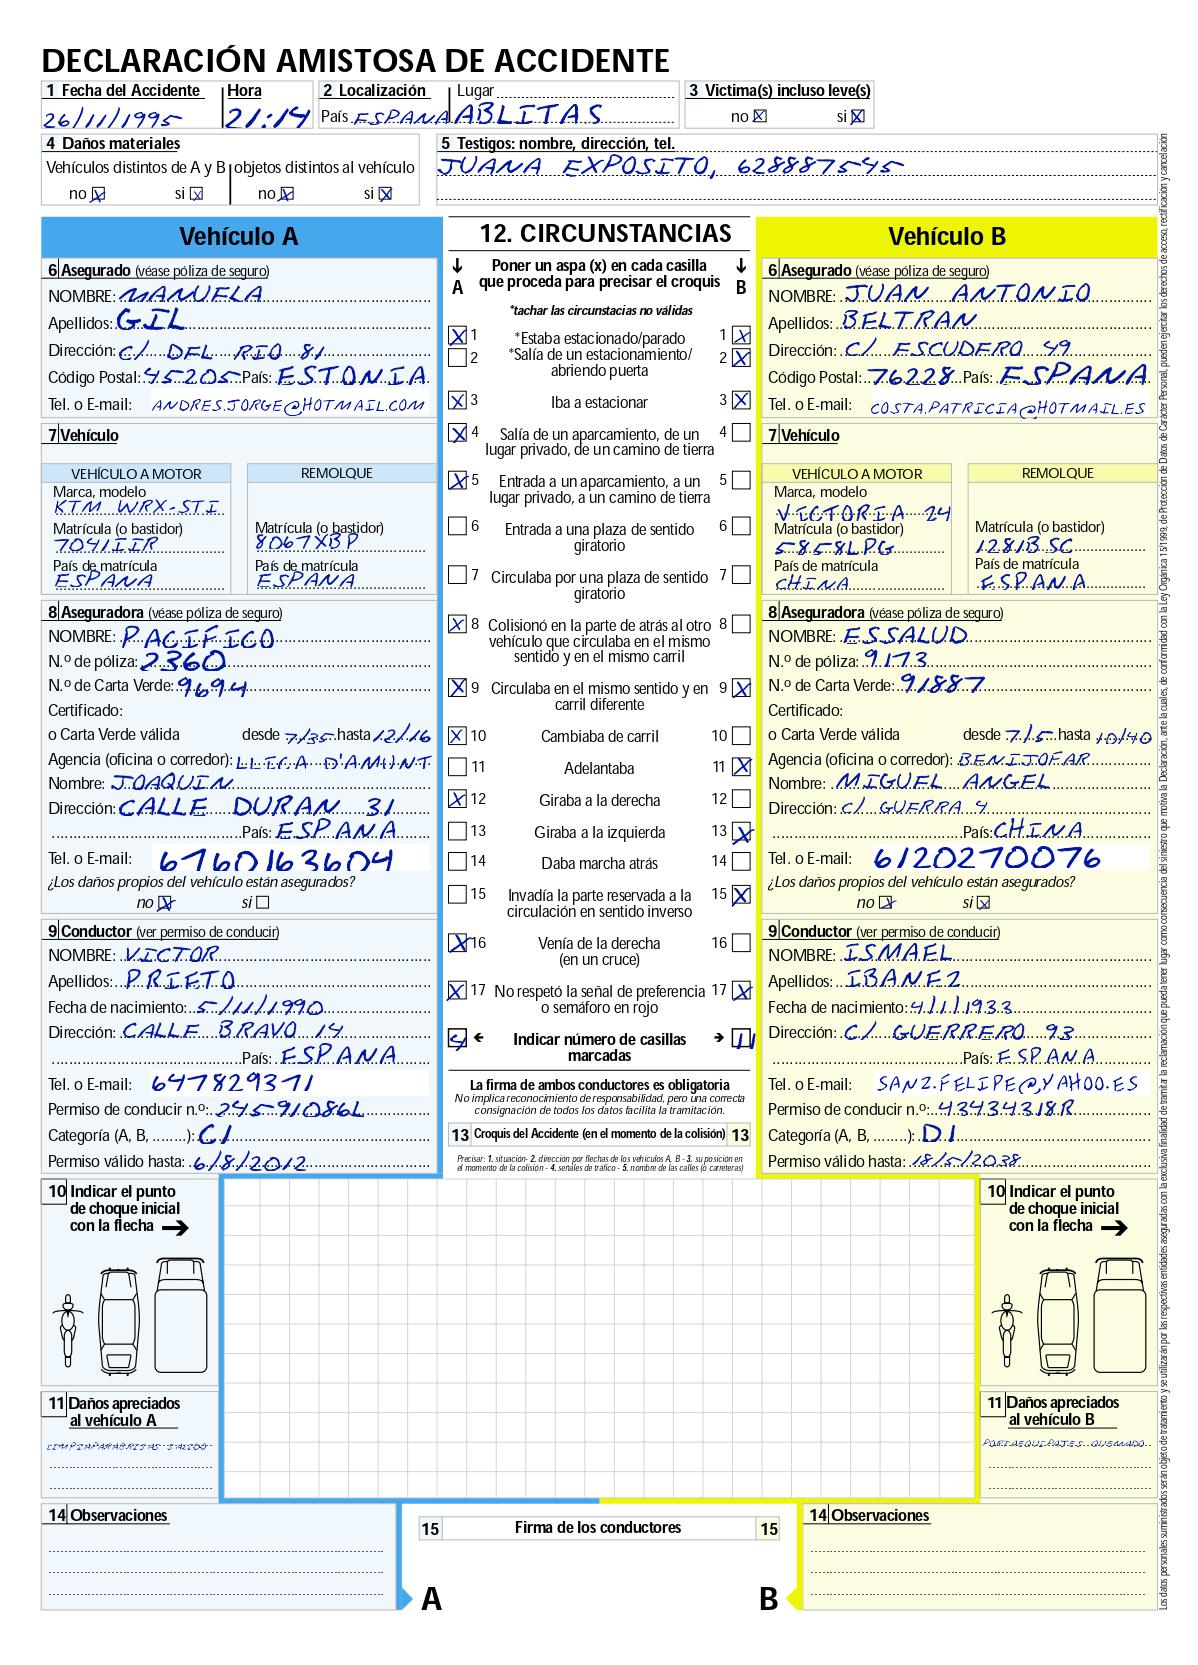 DECLARACIÓN AMISTOSA DE ACCIDENTE
1 Fecha del Accidente Hora 2 Localización Lugar 3 Victima(s) incluso leve(s)
26/11/1995 21:14 País ESPANA ABLITAS no X si X
4 Daños materiales 5 Testigos: nombre, dirección, tel.
Vehículos distintos de A y B objetos distintos al vehículo JUANA EXPOSITO, 628887545
no X si X no X si X
Vehículo A
6 Asegurado (véase póliza de seguro)
NOMBRE: MANUELA
Apellidos: GIL
Dirección: C/ DEL RIO 81
Código Postal: 45205 País: ESTONIA
Tel. o E-mail: ANDRES.JORGE@HOTMAIL.COM
7 Vehículo
VEHÍCULO A MOTOR REMOLQUE
Marca, modelo
KTM WRX-STI
Matrícula (o bastidor) Matrícula (o bastidor)
7041IIR 8067XBP
País de matrícula País de matrícula
ESPANA ESPANA
8 Aseguradora (véase póliza de seguro)
NOMBRE: PACIFICO
N.º de póliza: 2360
N.º de Carta Verde: 9694
Certificado:
o Carta Verde válida desde 7/35 hasta 12/16
Agencia (oficina o corredor): LLICA D'AMUNT
Nombre: JOAQUIN
Dirección: CALLE DURAN 31
País: ESPANA
Tel. o E-mail: 6760163604
¿Los daños propios del vehículo están asegurados?
no X si
9 Conductor (ver permiso de conducir)
NOMBRE: VICTOR
Apellidos: PRIETO
Fecha de nacimiento: 5/11/1990
Dirección: CALLE BRAVO 14
País: ESPANA
Tel. o E-mail: 647829371
Permiso de conducir n.º: 24591086L
Categoría (A, B, ........): C1
Permiso válido hasta: 6/8/2012
12. CIRCUNSTANCIAS
Poner un aspa (x) en cada casilla
A que proceda para precisar el croquis B
*tachar las circunstacias no validas
X 1 *Estaba estacionado/parado 1 X
2 *Salía de un estacionamiento/ 2 X
abriendo puerta
X 3 Iba a estacionar 3 X
X 4 Salía de un aparcamiento, de un 4
lugar privado, de un camino de tierra
X 5 Entrada a un aparcamiento, a un 5
lugar privado, a un camino de tierra
6 Entrada a una plaza de sentido 6
giratorio
7 Circulaba por una plaza de sentido 7
giratorio
X 8 Colisionó en la parte de atrás al otro 8
vehículo que circulaba en el mismo
sentido y en el mismo carril
X 9 Circulaba en el mismo sentido y en 9 X
carril diferente
X 10 Cambiaba de carril 10
11 Adelantaba 11 X
X 12 Giraba a la derecha 12
13 Giraba a la izquierda 13 X
14 Daba marcha atrás 14
15 Invadía la parte reservada a la 15 X
circulación en sentido inverso
X 16 Venía de la derecha 16
(en un cruce)
X 17 No respetó la señal de preferencia 17 X
o semáforo en rojo
Indicar número de casillas
marcadas
La firma de ambos conductores es obligatoria
No implica reconocimiento de responsabilidad, pero una correcta
consignación de todos los datos facilita la tramitación.
13 Croquis del Accidente (en el momento de la colisión) 13
Precisar: 1. situación- 2. dirección por flechas de los vehículos A, B - 3. su posición en
el momento de la colisión - 4. señales de tráfico - 5. nombre de las calles (o carreteras)
Vehículo B
6 Asegurado (véase póliza de seguro)
NOMBRE: JUAN ANTONIO
Apellidos: BELTRAN
Dirección: C/ ESCUDERO 49
Código Postal: 76228 País: ESPANA
Tel. o E-mail: COSTA.PATRICIA@HOTMAIL.ES
7 Vehículo
VEHÍCULO A MOTOR REMOLQUE
Marca, modelo
VICTORIA 24
Matrícula (o bastidor) Matrícula (o bastidor)
5858LPG 1281BSC
País de matrícula País de matrícula
CHINA ESPANA
8 Aseguradora (véase póliza de seguro)
NOMBRE: ESSALUD
N.º de póliza: 9173
N.º de Carta Verde: 91887
Certificado:
o Carta Verde válida desde 7/5 hasta 10/40
Agencia (oficina o corredor): BENIJOFAR
Nombre: MIGUEL ANGEL
Dirección: C/ GUERRA 4
País: CHINA
Tel. o E-mail: 6120270076
¿Los daños propios del vehículo están asegurados?
no X si X
9 Conductor (ver permiso de conducir)
NOMBRE: ISMAEL
Apellidos: IBANEZ
Fecha de nacimiento: 4/1/1933
Dirección: C/ GUERRERO 93
País: ESPANA
Tel. o E-mail: SANZ.FELIPE@YAHOO.ES
Permiso de conducir n.º: 43434318R
Categoría (A, B, ........): D1
Permiso válido hasta: 18/5/2038
10 Indicar el punto
de choque inicial
con la flecha
11 Daños apreciados
al vehículo A
LIMPIAPARABRISAS SALIDO
10 Indicar el punto
de choque inicial
con la flecha
11 Daños apreciados
al vehículo B
PORTAEQUIPAJES QUEMADO
14 Observaciones
15 Firma de los conductores 15
A B
14 Observaciones
Los datos personales suministrados serán objeto de tratamiento y se utilizarán por las respectivas entidades aseguradas con la exclusiva finalidad de tramitar la reclamación que pueda tener lugar como consecuencia del siniestro que motiva la Declaración, ante la cuales, de conformidad con la Ley Orgánica 15/1999, de Protección de Datos de Carácter Personal, pueden ejercitar los derechos de acceso, rectificación y cancelación